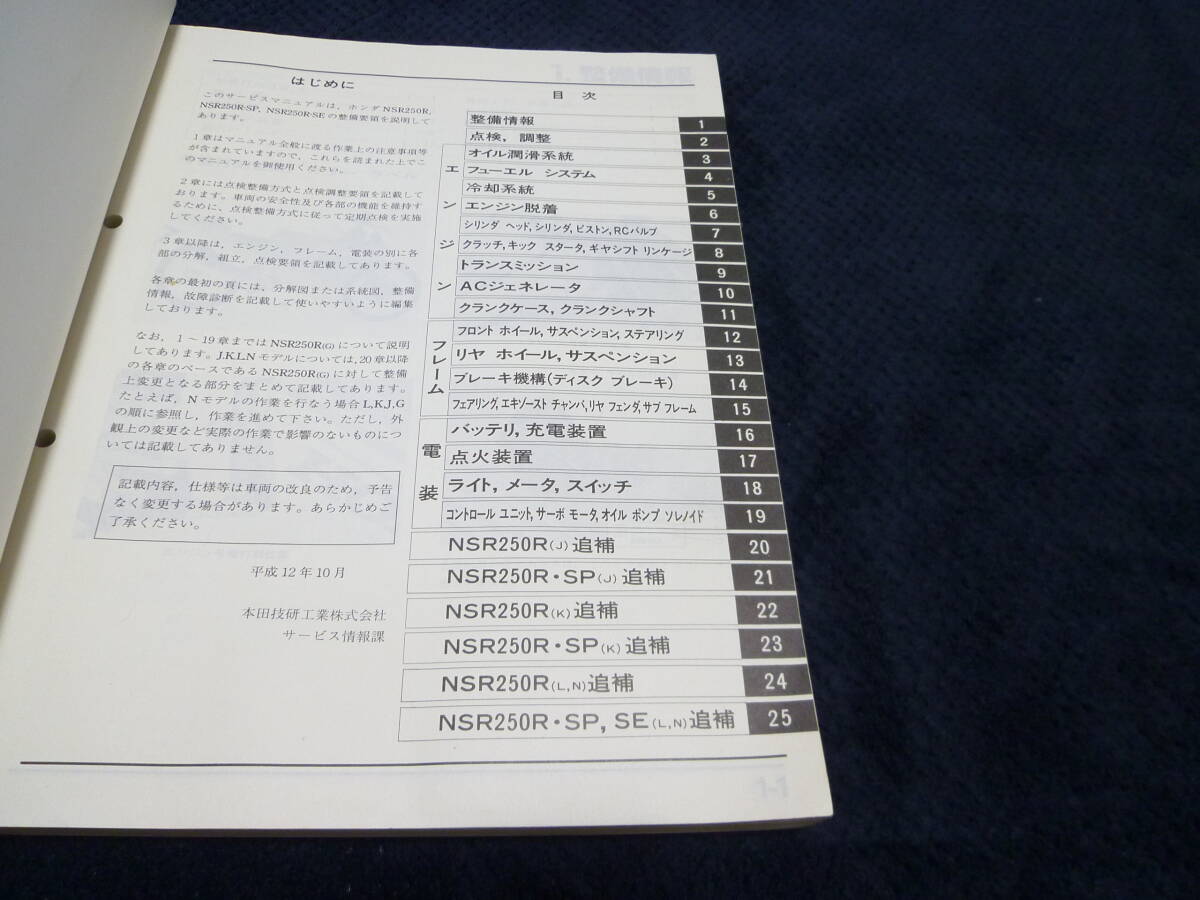 はじめに
このサービスマニュアルは、ホンダNSR250R,
NSR250R·SP、NSR250R·SEの整備要領を説明して
あります。
1章はマニュアル全般に渡る作業上の注意事項等
が含まれていますので、これらを読まれた上でこ
のマニュアルを御使用ください。
2章には点検整備方式と点検調整要領を記載して
おります。車両の安全性及び各部の機能を維持す
るために、点検整備方式に従って定期点検を実施
してください。
3章以降は、エンジン、フレーム、電装の別に各
部の分解、組立、点検要領を記載してあります。
各章の最初の頁には、分解図または系統図、整備
情報、故障診断を記載して使いやすいように編集
しております。
なお、1～19章まではNSR250R(G)について説明
してあります。J.K.L.Nモデルについては、20章以降
の各章のベースであるNSR250R(G)に対して整備
上変更となる部分をまとめて記載してあります。
たとえば、Nモデルの作業を行なう場合L,K,J,G
の順に参照し、作業を進めて下さい。ただし、外
観上の変更など実際の作業で影響のないものにつ
いては記載してありません。
記載内容、仕様等は車両の改良のため、予告
なく変更する場合があります。あらかじめご
了承ください。
平成12年10月
本田技研工業株式会社
サービス情報課
目 次
整備情報 1
点検，調整 2
エンジン
オイル潤滑系統 3
フューエル システム 4
冷却系統 5
エンジン脱着 6
シリンダ ヘッド,シリンダ,ピストン,RCバルブ 7
クラッチ,キック スタータ,ギヤシフト リンケージ 8
トランスミッション 9
ACジェネレータ 10
クランクケース,クランクシャフト 11
フレーム
フロント ホイール,サスペンション,ステアリング 12
リヤ ホイール,サスペンション 13
ブレーキ機構(ディスク ブレーキ) 14
フェアリング,エキゾースト チャンバ,リヤ フェンダ,サブ フレーム 15
電装
バッテリ,充電装置 16
点火装置 17
ライト,メータ,スイッチ 18
コントロール ユニット,サーボ モータ,オイル ポンプ ソレノイド 19
NSR250R(J)追補 20
NSR250R·SP(J)追補 21
NSR250R(K)追補 22
NSR250R·SP(K)追補 23
NSR250R(L,N)追補 24
NSR250R·SP, SE(L,N)追補 25
1. 整備情報
1-1